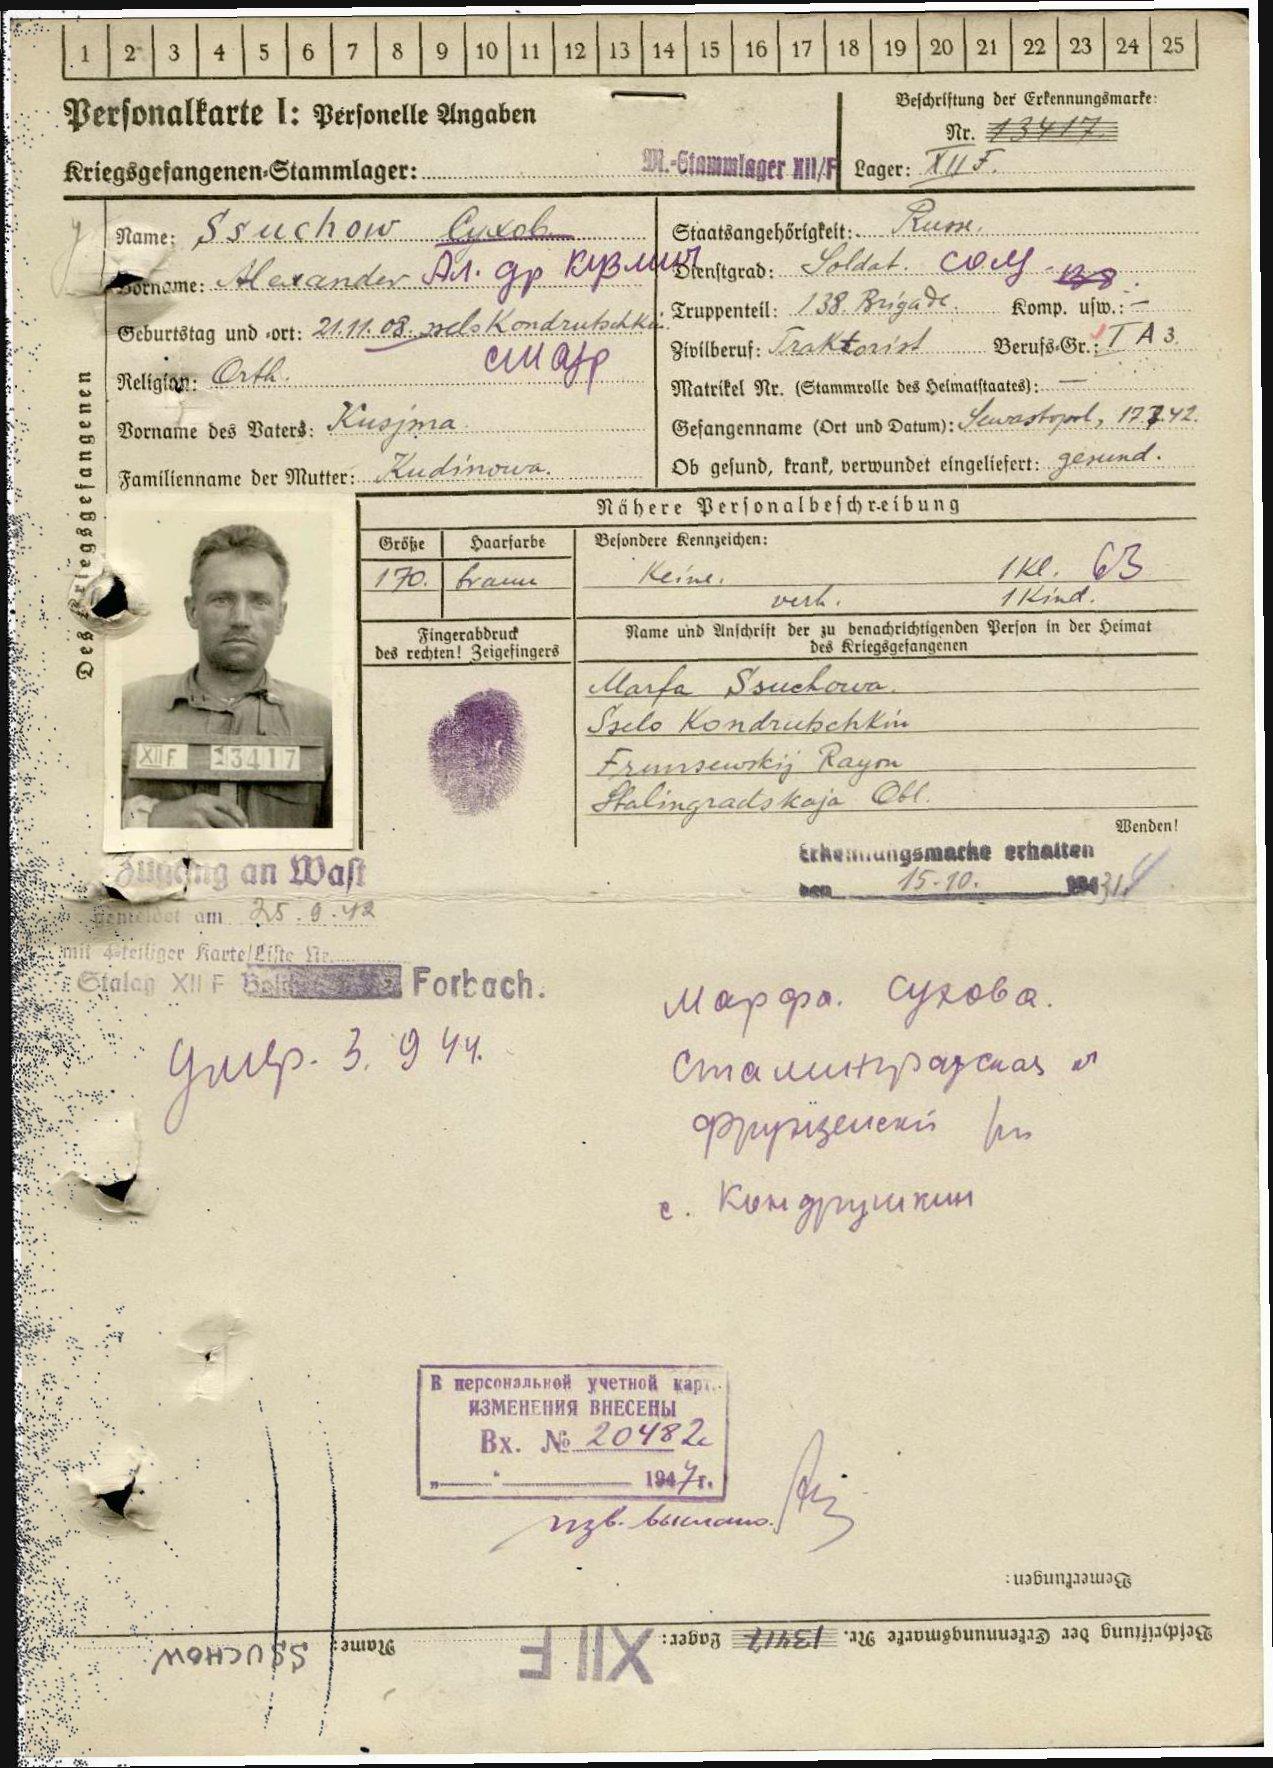 1 2 3 4 5 6 7 8 9 10 11 12 13 14 15 16 17 18 19 20 21 22 23 24 25
Personalkarte I: Personelle Angaben
Beschriftung der Erkennungsmarke:
Nr. 13417.
Kriegsgefangenen-Stammlager: M.-Stammlager XII/F
Lager: XII F.
Des Kriegsgefangenen
Name: Ssuchow Сухов
Vorname: Alexander Ал. др Кузмич
Geburtstag und -ort: 21.11.08. sselo Kondrutschkin
Religion: Orth.
Vorname des Vaters: Kusjma
Familienname der Mutter: Kudinowa.
Staatsangehörigkeit: Russe.
Dienstgrad: Soldat. сол
Truppenteil: 138. Brigade. Komp. usw.: —
Zivilberuf: Traktorist Berufs-Gr.: I A 3.
Matrikel Nr. (Stammrolle des Heimatstaates): —
Gefangenname (Ort und Datum): Sewastopol, 17.7.42.
Ob gesund, krank, verwundet eingeliefert: gesund.
XII F 13417
Nähere Personalbeschreibung
Größe Haarfarbe Besondere Kennzeichen:
170. braun Keine. 1 Kl. 63
verh. 1 Kind.
Fingerabdruck
des rechten! Zeigefingers
Name und Anschrift der zu benachrichtigenden Person in der Heimat
des Kriegsgefangenen
Marfa Ssuchowa.
Sselo Kondrutschkin
Frunsewskij Rayon
Stalingradskaja Obl.
Wenden!
Zugang an Wast
gemeldet am 25.9.42
mit 4-teiliger Karte/Liste Nr.
Stalag XII F Forbach.
Erkennungsmarke erhalten
den 15.10. 194
умер. 3. 9 44.
Марфа. Сухова.
Сталинградская
Фрунзенский
с. Кондрушкин
В персональной учетной карт.
ИЗМЕНЕНИЯ ВНЕСЕНЫ
Вх. № 20482с
„ “ 1947г.
изв. выслано.
Bemerkungen:
Beschriftung der Erkennungsmarke Nr. 13417 Lager: XII F Name: SSUCHOW